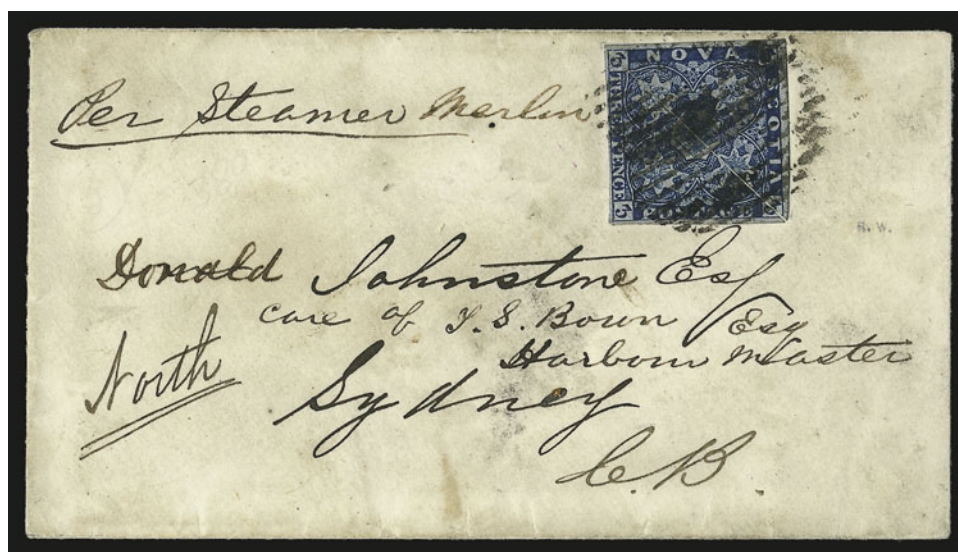 Per Steamer Merlin
NOVA
SCOTIA
THREE PENCE
POSTAGE
Donald Johnstone Esq
care of T. S. Bown Esq
Harbour Master
North
Sydney
C.B.